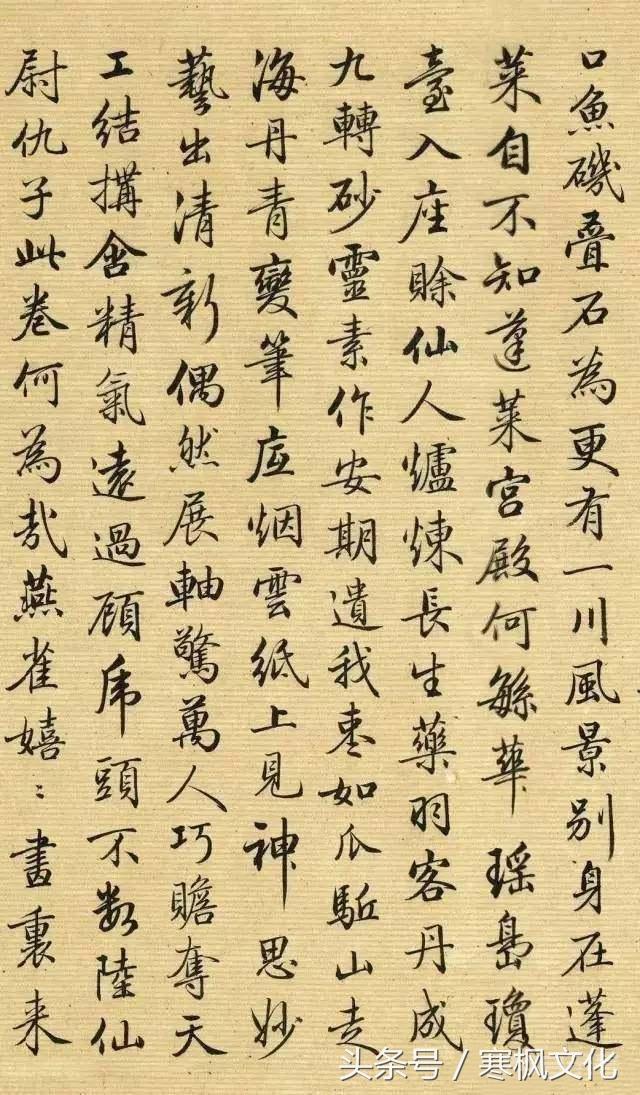 口魚磯疊石為更有一川風景别身在蓬
萊自不知蓬萊宮殿何繇華瑶島瓊
臺入座賖仙人爐煉長生藥羽客丹成
九轉砂靈素作安期遺我棗如瓜駈山走
海丹青變筆底烟雲紙上見神思妙
藝出清新偶然展軸驚萬人巧贍奪天
工結搆含精氣遠過顾虎頭不数陸仙
尉仇子此卷何為哉燕雀嬉〻畫裏来
头条号/寒枫文化